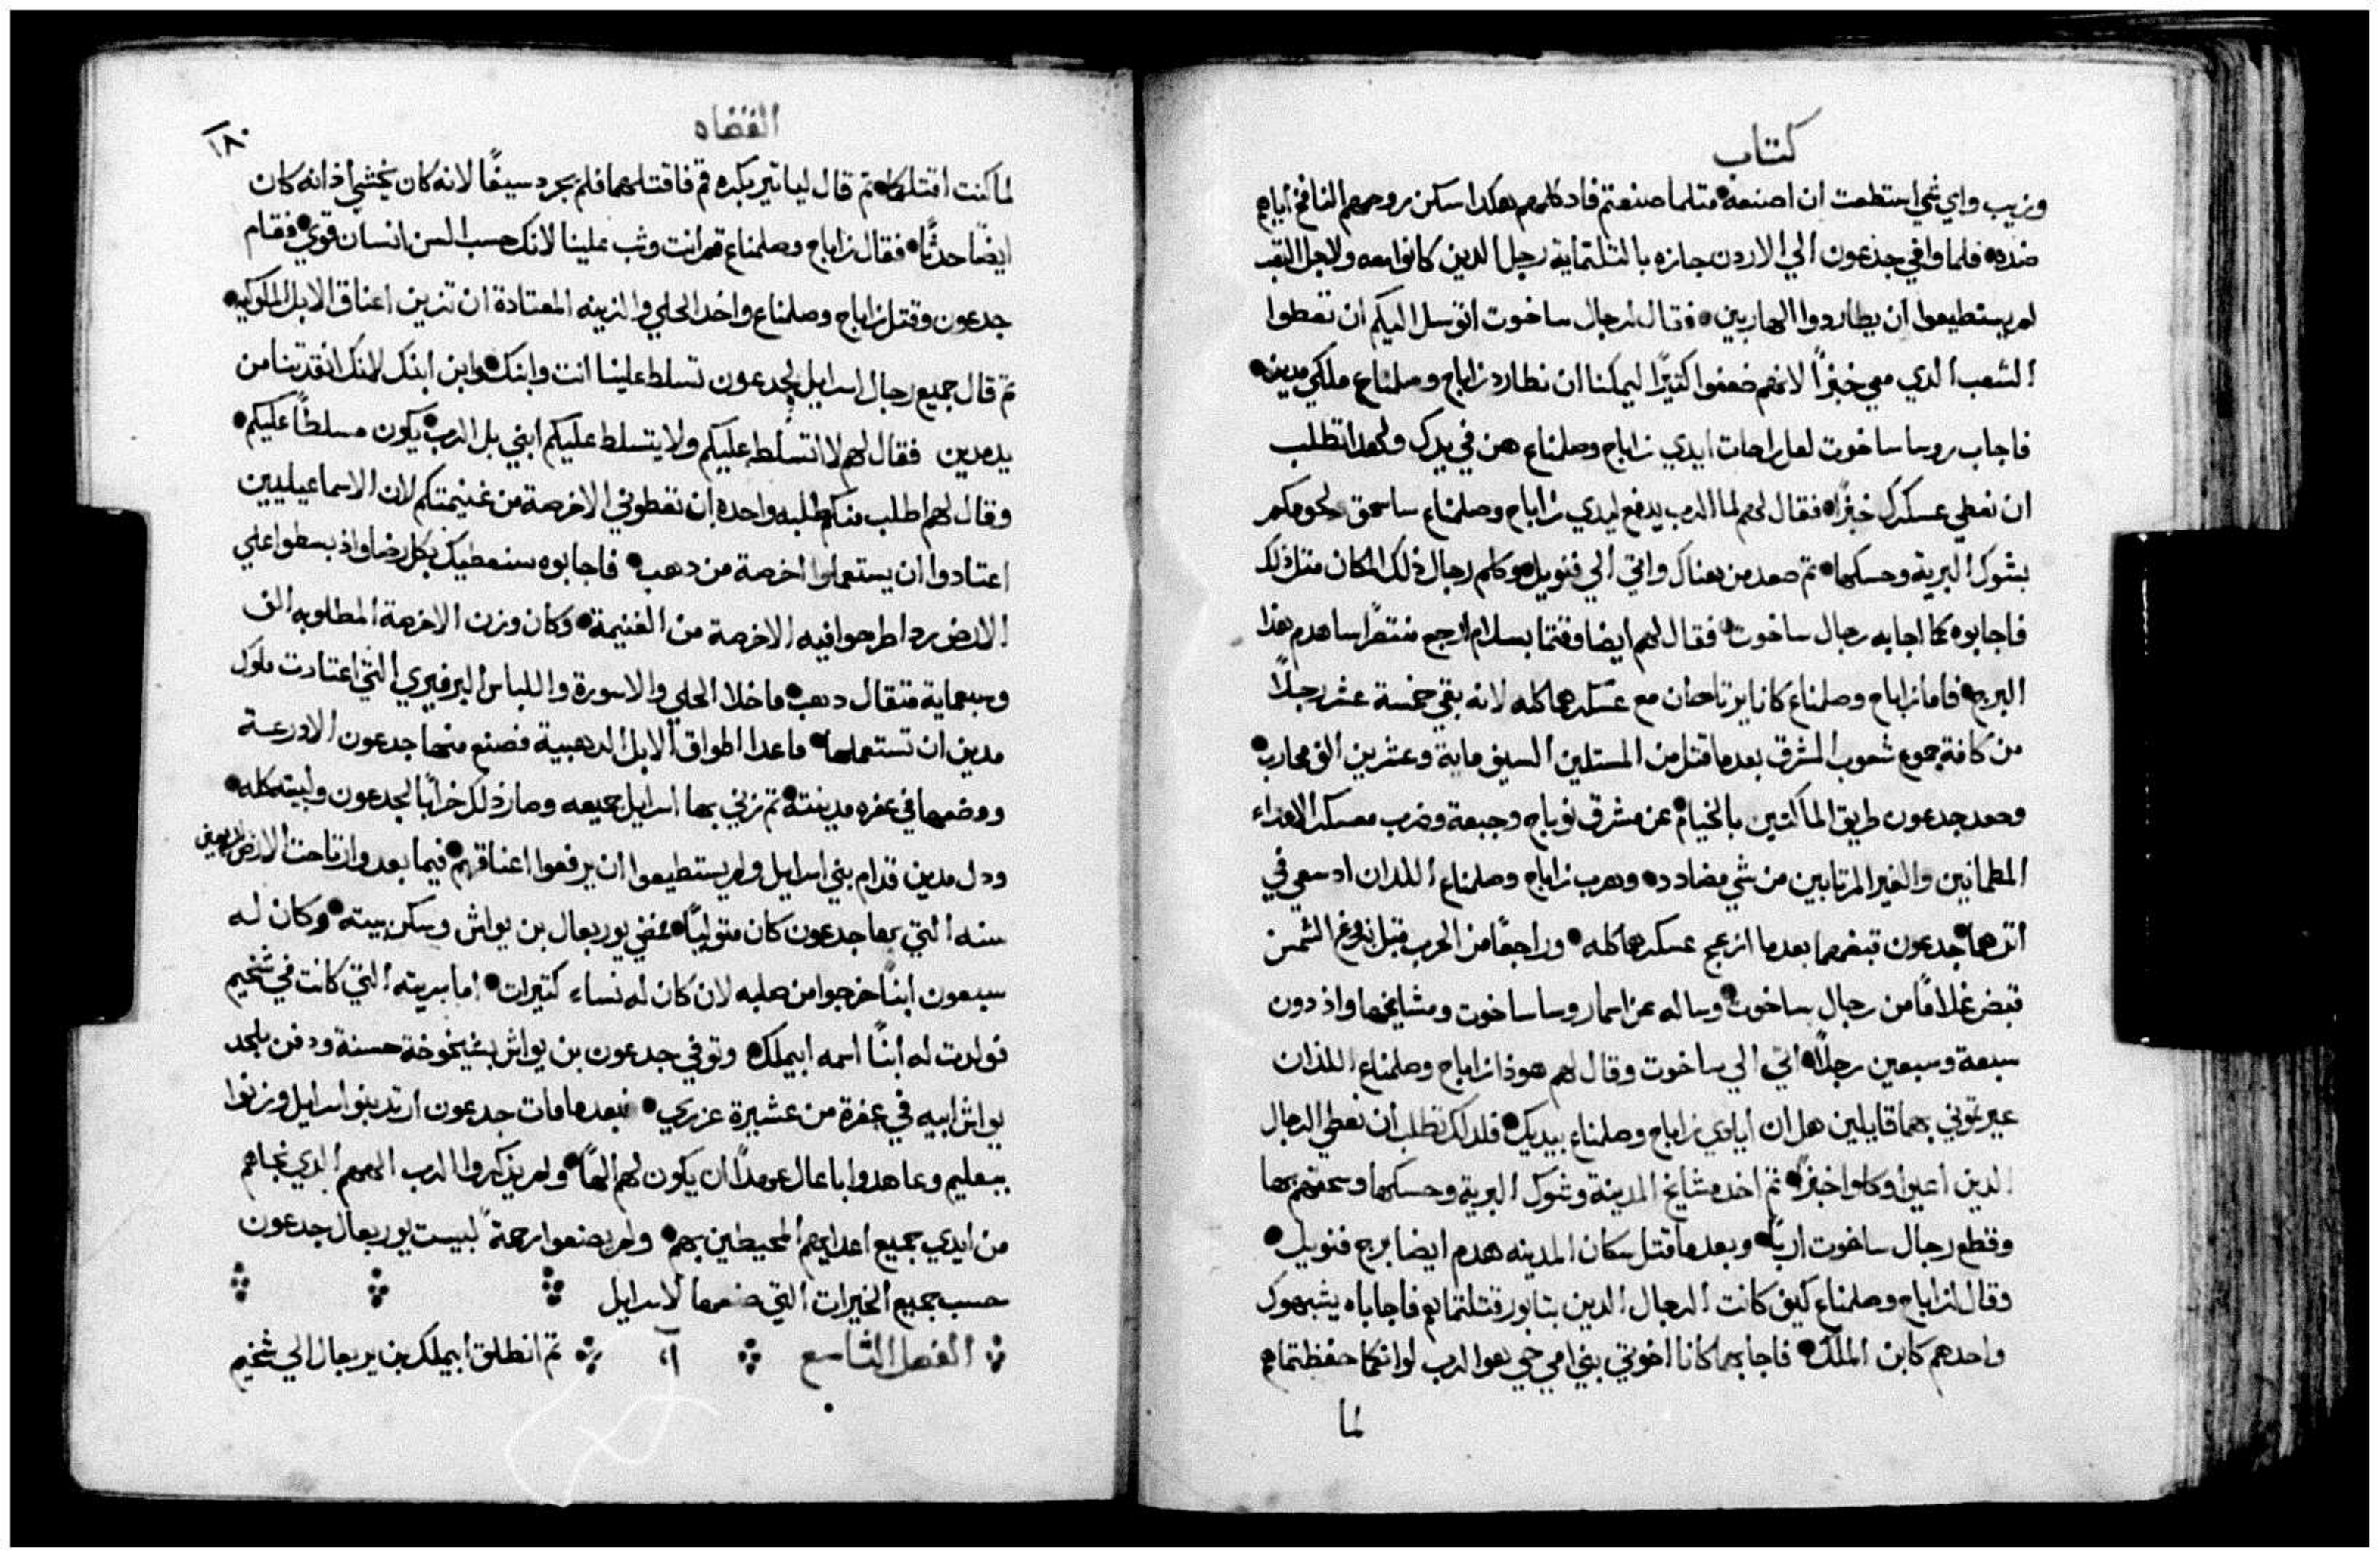 كتاب
وزيب واي شي استطعت ان اصنعه مثلما صنعتم فاد كلمهم هكدا سكن روحهم النافخ اياهم
ضده فلما وافي جدعون الي الاردن جازه بالثلثماية رجل الدين كانوا معه ولاجل التعب
لم يستطيعوا ان يطاردوا الهاربين فقال لرجال ساخوت اتوسل اليكم ان تعطوا
الشعب الدي معي خبزاً لانهم ضعفوا كتيرًا ليمكننا ان نطارد زاباح وصلمناع ملكي مدين
فاجاب روسا ساخوت لعل راحات ايدي زاباح وصلمناع هن في يدك ولهدا تطلب
ان نعطي عسكرك خبزًا فقال لهم لما الرب يدفع ليدي زاباح وصلمناع ساسحق لحومكم
بشوك البرية وحسكها تم صعد من هناك واتي الي فنويل وكلم رجال ذلك المكان مثل ذلك
فاجابوه كما اجابه رجال ساخوت فقال لهم ايضا وقتما بسلام ارجع منتصرًا ساهدم هذا
البرج فاما زاباح وصلمناع كانا يرتاحان مع عسكرهما كله لانه بقي خمسة عشر رجلاً
من كافة جموع شعوب المشرق بعد ما قتل من المستلين السيف ماية وعشرين الف محارب
وصعد جدعون طريق الماكتين بالخيام عن مشرق نوباح وجبعة وضرب معسكر الاعداء
المطمانين والغير المرتابين من شي مضادد وهرب زاباح وصلمناع اللدان اد سعي في
اترهما جدعون قبضهما بعدما ازعج عسكرهما كله وراجعًا من الحرب قبل بزوغ الشمس
قبض غلامًا من رجال ساخوت وساله عن اسما روسا ساخوت ومشايخها واذ دون
سبعة وسبعين رجلاً اتي الي ساخوت وقال لهم هوذا زاباح وصلمناع اللذان
عيرتوني بهما قايلين هل ان ايادي زاباح وصلمناع بيديك فلدلك تطلب ان نعطي الرجال
الدين اعيوا وكلوا خبزًا تم اخد مشايخ المدينة وشوك البرية وحسكها وسحقهم بها
وقطع رجال ساخوت اربًا وبعدما قتل سكان المدينه هدم ايضا برج فنويل
وقال لزاباح وصلمناع كيف كانت الرجال الدين بتابور قتلتماهم فاجاباه يشبهوك
واحدهم كابن الملك فاجابهما كانا اخوتي بني امي حي هو الرب لو انكما حفظتماهم
لما
القضاه
١٨٠
لما كنت اقتلكما تم قال لياتير بكره قم فاقتلهما فلم يجرد سيفًا لانه كان يخشي اذ انه كان
ايضًا حدثًا فقال زاباح وصلمناع قم انت وثب علينا لانك حسب السن انسان قوي فقام
جدعون وقتل زاباح وصلمناع واخد الحلي والزينه المعتادة ان تزين اعناق الابل الملوكيه
تم قال جميع رجال اسرايل لجدعون تسلط علينا انت وابنك وابن ابنك لانك انقدتنا من
يد مدين فقال لهم لا اتسلط عليكم ولا يتسلط عليكم ابني بل الرب يكون مسلطًا عليكم
وقال لهم اطلب منكم طلبه واحده ان تعطوني الاخرصة من غنيمتكم لان الاسماعيليين
اعتادوا ان يستعملوا اخرصة من دهب فاجابوه سنعطيك بكل رضا واذ بسطوا علي
الارض ردا طرحوا فيه الاخرصة من الغنيمة وكان وزن الاخرصة المطلوبه الف
وسبعماية مثقال دهب ما خلا الحلي والاسورة واللباس البرفيري التي اعتادت ملوك
مدين ان تستعملها ماعدا اطواق الابل الدهبية فصنع منها جدعون الاورعة
ووضعها في عفره مدينته تم زني بها اسرايل جميعه وصار ذلك خرابًا لجدعون ولبيته كله
ودل مدين قدام بني اسرايل ولم يستطيعوا ان يرفعوا اعناقهم فيما بعد وارتاحت الارض اربعين
سنه التي بها جدعون كان متوليًا فمضي يوربعال بن يواش وسكن بيته وكان له
سبعون ابنًا خرجوا من صلبه لان كان له نساء كتيرات اما سريته التي كانت في شخيم
فولدت له ابنًا اسمه ابيملك وتوفي جدعون بن يواش بشيخوخة حسنة ودفن بلحد
يواش ابيه في عفرة من عشيرة عزري فبعدما مات جدعون ارتد بنو اسرايل وزنوا
ببعليم وعاهدوا باعال عهدًا ان يكون لهم الهًا ولم يذكروا الرب الههم الدي نجاهم
من ايدي جميع اعدايهم المحيطين بهم ولم يصنعوا رحمة لبيت يوربعال جدعون
حسب جميع الخيرات التي صنعها لاسرايل
الفصل التاسع آ تم انطلق ابيملك بن يربعال الي شخيم